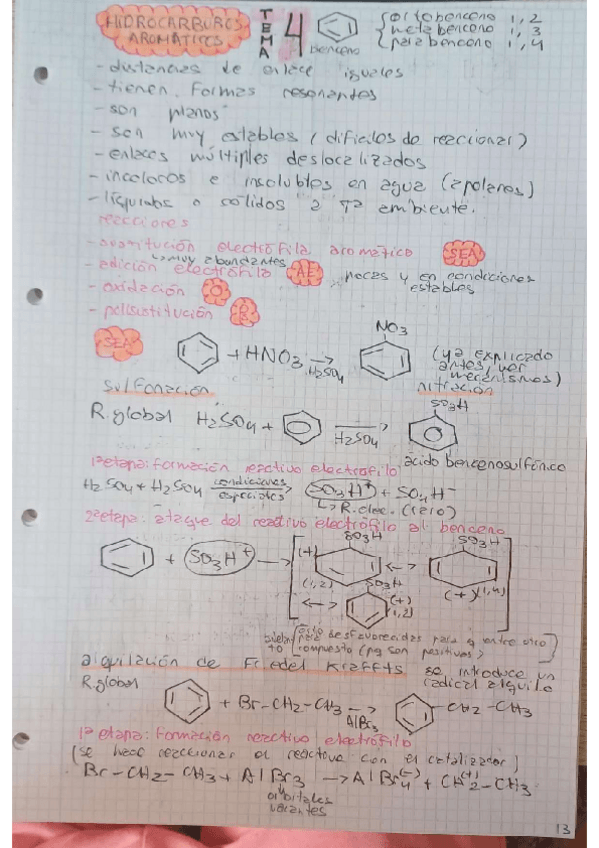 HIDROCARBUROS AROMÁTICOS
TEMA 4
benceno
ortobenceno 1,2
metabenceno 1,3
parabenceno 1,4
- distancias de enlace iguales
- tienen formas resonantes
- son planos
- son muy estables (dificiles de reaccionar)
- enlaces múltiples deslocalizados
- incoloros e insolubles en agua (apolares)
- líquidos o sólidos a Tª ambiente.
reacciones
- sustitución electrófila aromático SEA
↳ muy abundantes
- adición electrófila AE, pocas y en condiciones estables
- oxidación O
- polisustitución P
SEA
+ HNO3 → H2SO4
NO3
(ya explicado antes, ver mecanismos)
nitración
Sulfonación
R.global H2SO4 + → H2SO4
SO3H
ácido bencenosulfónico
1ªetapa: formación reactivo electrófilo
H2SO4 + H2SO4 condiciones especiales → SO3H+ + SO4H-
↳ R.elec. (raro)
2ªetapa: ataque del reactivo electrófilo al benceno
+ SO3H+ →
(+) SO3H (1,2) ↔ SO3H (+) (1,4)
↔ SO3H (+) (1,2)
desfavorecidas para q entre otro
compuesto (pq son positivas)
alquilación de Friedel Kraffts se introduce un radical alquilo
R.global
+ Br-CH2-CH3 → AlBr3
-CH2-CH3
1ª etapa: Formación reactivo electrófilo
(se hace reaccionar el reactivo con el catalizador)
Br-CH2-CH3 + AlBr3 → AlBr4(-) + CH2(+)-CH3
orbitales vacantes
13